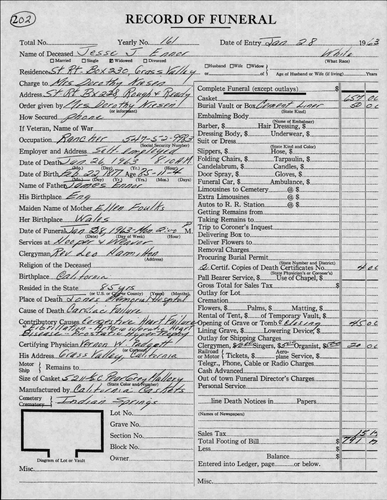 202
RECORD OF FUNERAL
Total No. Yearly No. 161 Date of Entry Jan 28 1963
Name of Deceased Jesse J Ennor White
Married Single Widowed Divorced (What Race)
Residence St Rt. Box 230, Grass Valley Husband Wife Widow of
Charge to Mrs Dorothy Age of Husband or Wife (if living) Years
Address St Rt Box 228 Rough & Ready
Order given by Mrs Dorothy
How Secured phone
If Veteran, Name of War
Occupation Rancher
(Social Security Number)
Employer and Address Self Employed
Date of Death Jan 26 1963
Date of Birth Feb 22 1877
Name of Father James Ennor
His Birthplace Eng
Maiden Name of Mother Ellen Foulks
Her Birthplace Wales
Date of Funeral Jan 28, 1963
Services at Hooper & Weaver
Clergyman Rev Leo
Religion of the Deceased
Birthplace California
Resided in the State 85 yrs
Place of Death Jones Memorial Hospital
Cause of Death Cardiac Failure
Contributory Causes Congestive Heart Failure
Certifying Physician
His Address Grass Valley, California
Motor
Rail Ship Remains to
Size of Casket
Manufactured by California Caskets
Cemetery
Crematory Indian Springs
Lot No.
Grave No.
Section No.
Block No.
Owner
Diagram of Lot or Vault
Misc.
Complete Funeral (except outlays) $
Casket
Burial Vault or Box Cement Liner
Embalming Body
(Name of Embalmer)
Barber, $ Hair Dressing, $
Dressing Body, $ Underwear, $
Suit or Dress
(State Kind and Color)
Slippers, $ Hose, $
Folding Chairs, $ Tarpaulin, $
Candelabrum, $ Candles, $
Door Spray, $ Gloves, $
Funeral Car, $ Ambulance, $
Limousines to Cemetery @ $
Extra Limousines @ $
Autos to R. R. Station @ $
Getting Remains from
Taking Remains to
Trip to Coroner's Inquest
Delivering Box to
Deliver Flowers to
Removal Charges
Procuring Burial Permit
(State Number and District)
2 Certif. Copies of Death Certificates No. 4 00
(State Physician's or Coroner's)
Pall Bearer Service, $ Use of Chapel, $
Gross Total for Sales Tax $
Outlay for Lot
Cremation
Flowers, $ Palms, $ Matting, $
Rental of Tent, $ of Temporary Vault, $
Opening of Grave or Tomb 45 00
Lining Grave, $ Lowering Device, $
Outlay for Shipping Charges
Clergymen, $ Singers, $ Organist, $ 20 00
Railroad Aero-
or Motor Tickets, $ plane Service, $
Telegr., Phone, Cable or Radio Charges
Cash Advanced
Out of town Funeral Director's Charges
Personal Service
line Death Notices in Papers
(Names of Newspapers)
Sales Tax
Total Footing of Bill $
Less
Balance $
Entered into Ledger, page or below.
Misc.